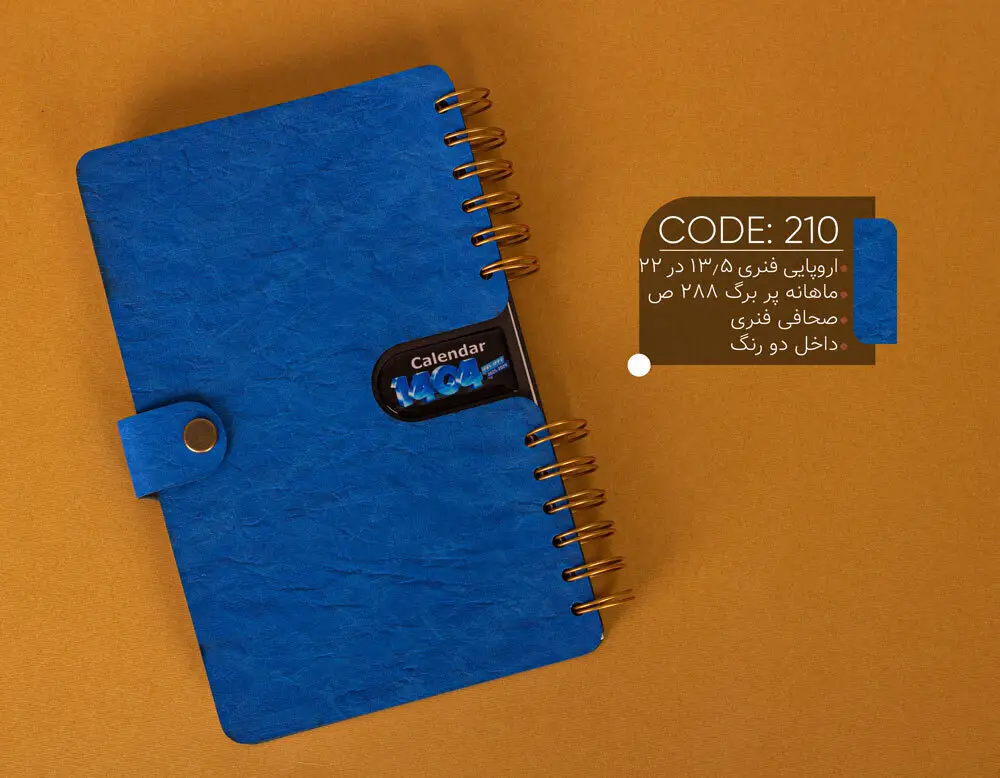 Calendar
1404
CODE: 210
اروپایی فنری ۱۳٫۵ در ۲۲
ماهانه پر برگ ۲۸۸ ص
صحافی فنری
داخل دو رنگ